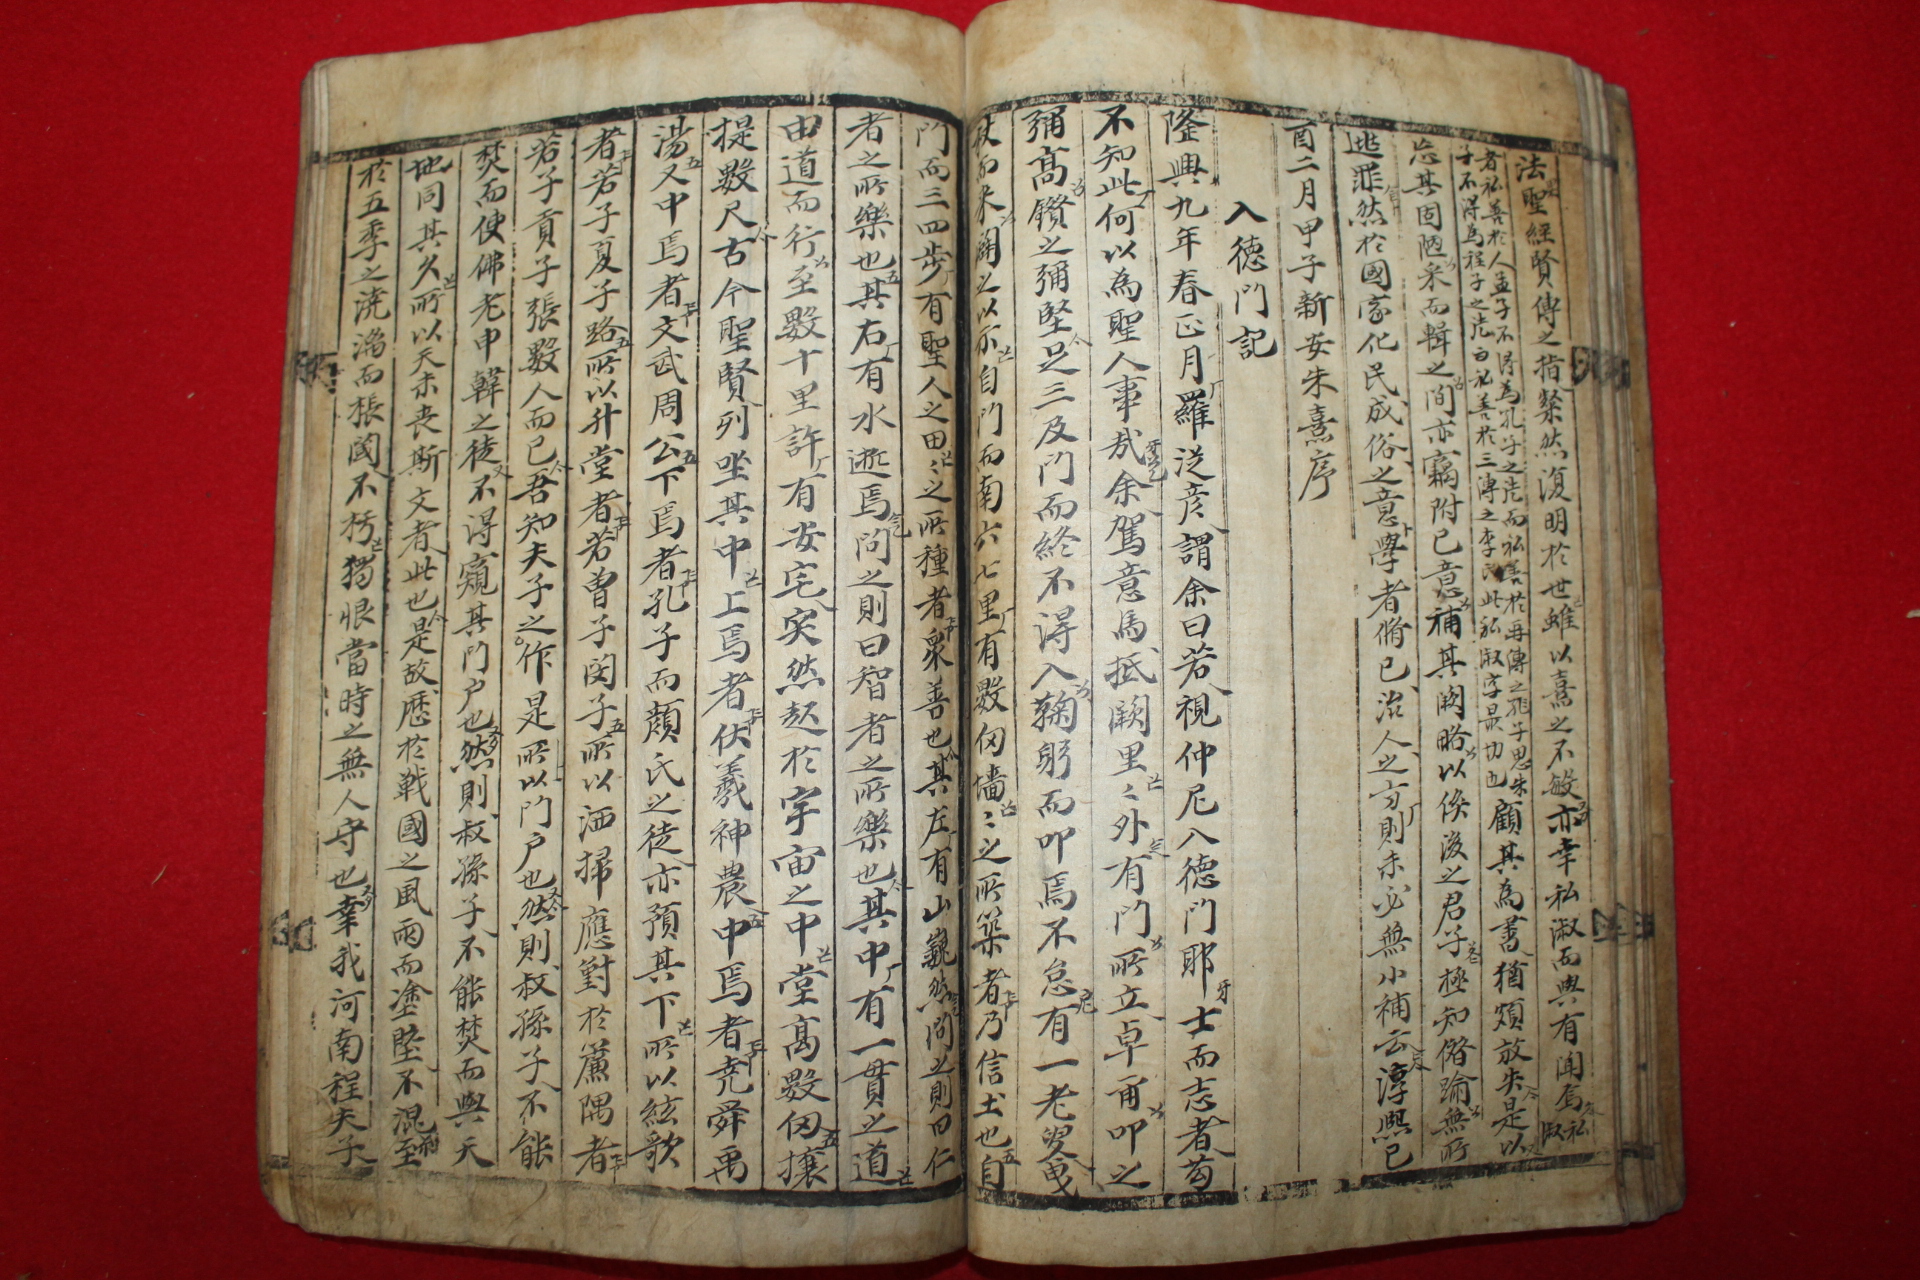 法聖經賢傳之指粲然復明於世雖以熹之不敏亦幸私淑而與有聞焉私淑
者私善於人孟子不得爲孔子之徒而私善於再傳之孔子思朱
子不得爲程子之徒自私善於三傳之李氏此私淑字最切也顧其爲書猶頗放失是以
忘其固陋采而輯之間亦竊附已意補其闕略以俟後之君子極知僭踰無所
逃罪然於國家化民成俗之意學者脩已治人之方則未必無小補云淳熙已
酉二月甲子新安朱熹序
入德門記
隆興九年春正月羅從彦謂余曰若視仲尼入德門耶士而志者苟
不知此何以爲聖人事哉余駕意馬抵闕里〻外有門所立卓甬叩之
彌高鑽之彌堅足三及門而終不得入鞠躬而叩焉不怠有一老叟曳
杖而來闢之以示自門而南六七里有數仞墻〻之所築者乃信土也自
門而三四步有聖人之田〻之所種者衆善也其左有山巍然問之則曰仁
者之所樂也其右有水逝焉問之則曰智者之所樂也其中有一貫之道
由道而行至數十里許有安宅突然起於宇宙之中堂高數仞攘
提數尺古今聖賢列坐其中上焉者伏羲神農中焉者堯舜禹
湯又中焉者文武周公下焉者孔子而顔氏之徒亦預其下所以絃歌
者若子夏子路所以升堂者若曾子閔子所以洒掃應對於廉隅者
若子貢子張數人而已吾知夫子之作是所以門户也然則叔孫子不能
焚而使佛老申韓之徒不得窺其門户也然則叔孫子不能焚而與天
地同其久所以天未丧斯文者此也是故歷於戰國之風雨而塗墍不混至
於五季之澆漓而棖闑不朽獨恨當時之無人守也幸我河南程夫子